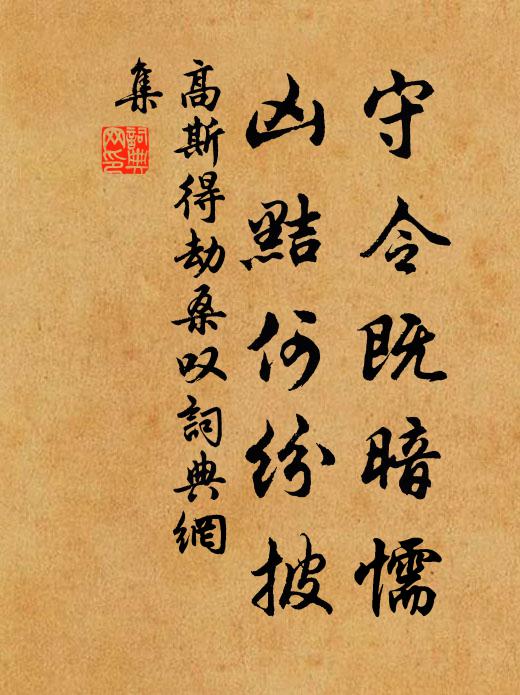 守令既暗懦
凶黠何纷披
高斯得劫桑叹詞典網
集
詞典網印